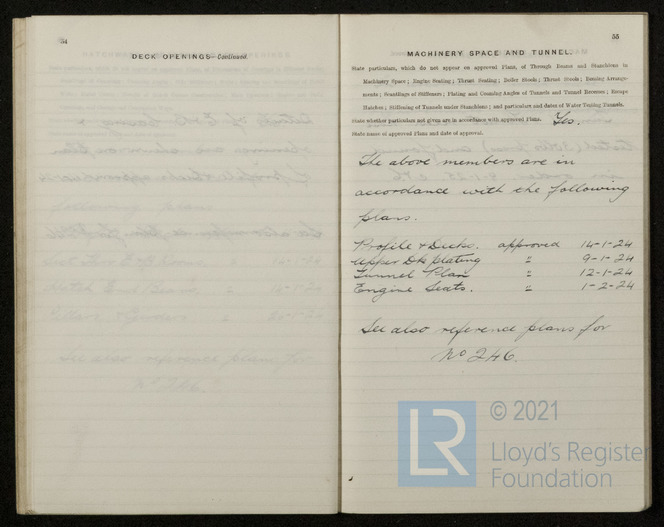 54
DECK OPENINGS—Continued.
55
MACHINERY SPACE AND TUNNEL.
State particulars, which do not appear on approved Plans, of Through Beams and Stanchions in
Machinery Space; Engine Seating; Thrust Seating; Boiler Stools; Thrust Stools; Boxing Arrange-
ments; Scantlings of Stiffeners; Plating and Coaming Angles of Tunnels and Tunnel Recesses; Escape
Hatches; Stiffening of Tunnels under Stanchions; and particulars and dates of Water Testing Tunnels.
State whether particulars not given are in accordance with approved Plans. Yes.
State names of approved Plans and date of approval.
The above members are in
accordance with the following
plans.
Profile & Decks. approved 14-1-24
Upper Dk plating " 9-1-24
Tunnel Plan " 12-1-24
Engine Seats. " 1-2-24
See also reference plans for
No 246.
LR
© 2021
Lloyd's Register
Foundation